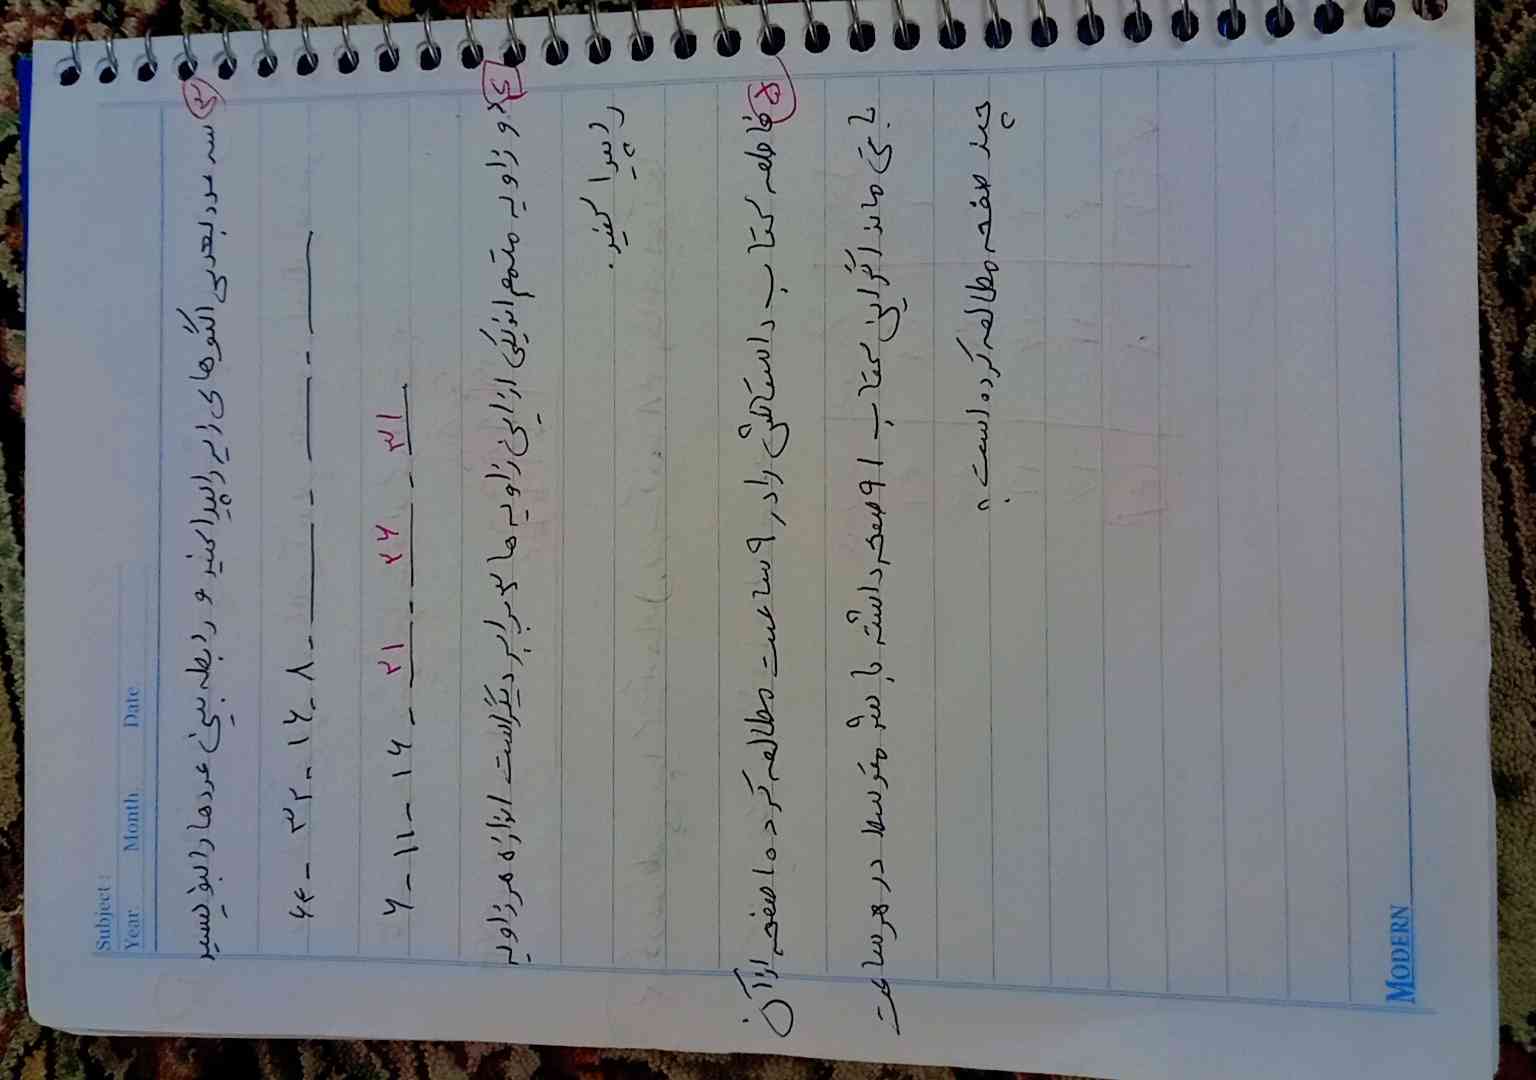 Subject :
Year Month Date
۳ سه عدد بعدی الگوهای زیر را پیدا کنید و رابطه بین عددها را بنویسید
۶۴ - ۳۲ - ۱۶ - ۸ - ____ - ____ - ____
۶ - ۱۱ - ۱۶ - ۲۱ - ۲۶ - ۳۱
۴ دو زاویه متمم اند یکی از این زاویه ها ۳ برابر دیگر است اندازه هر زاویه
را پیدا کنید.
۵ فاطمه کتاب داستانش را در ۹ ساعت مطالعه کرد ه ۱ صفحه از آن
باقی ماند اگر این کتاب ۹۱ صفحه داشته باشد متوسط در هر ساعت
چند صفحه مطالعه کرده است؟
MODERN